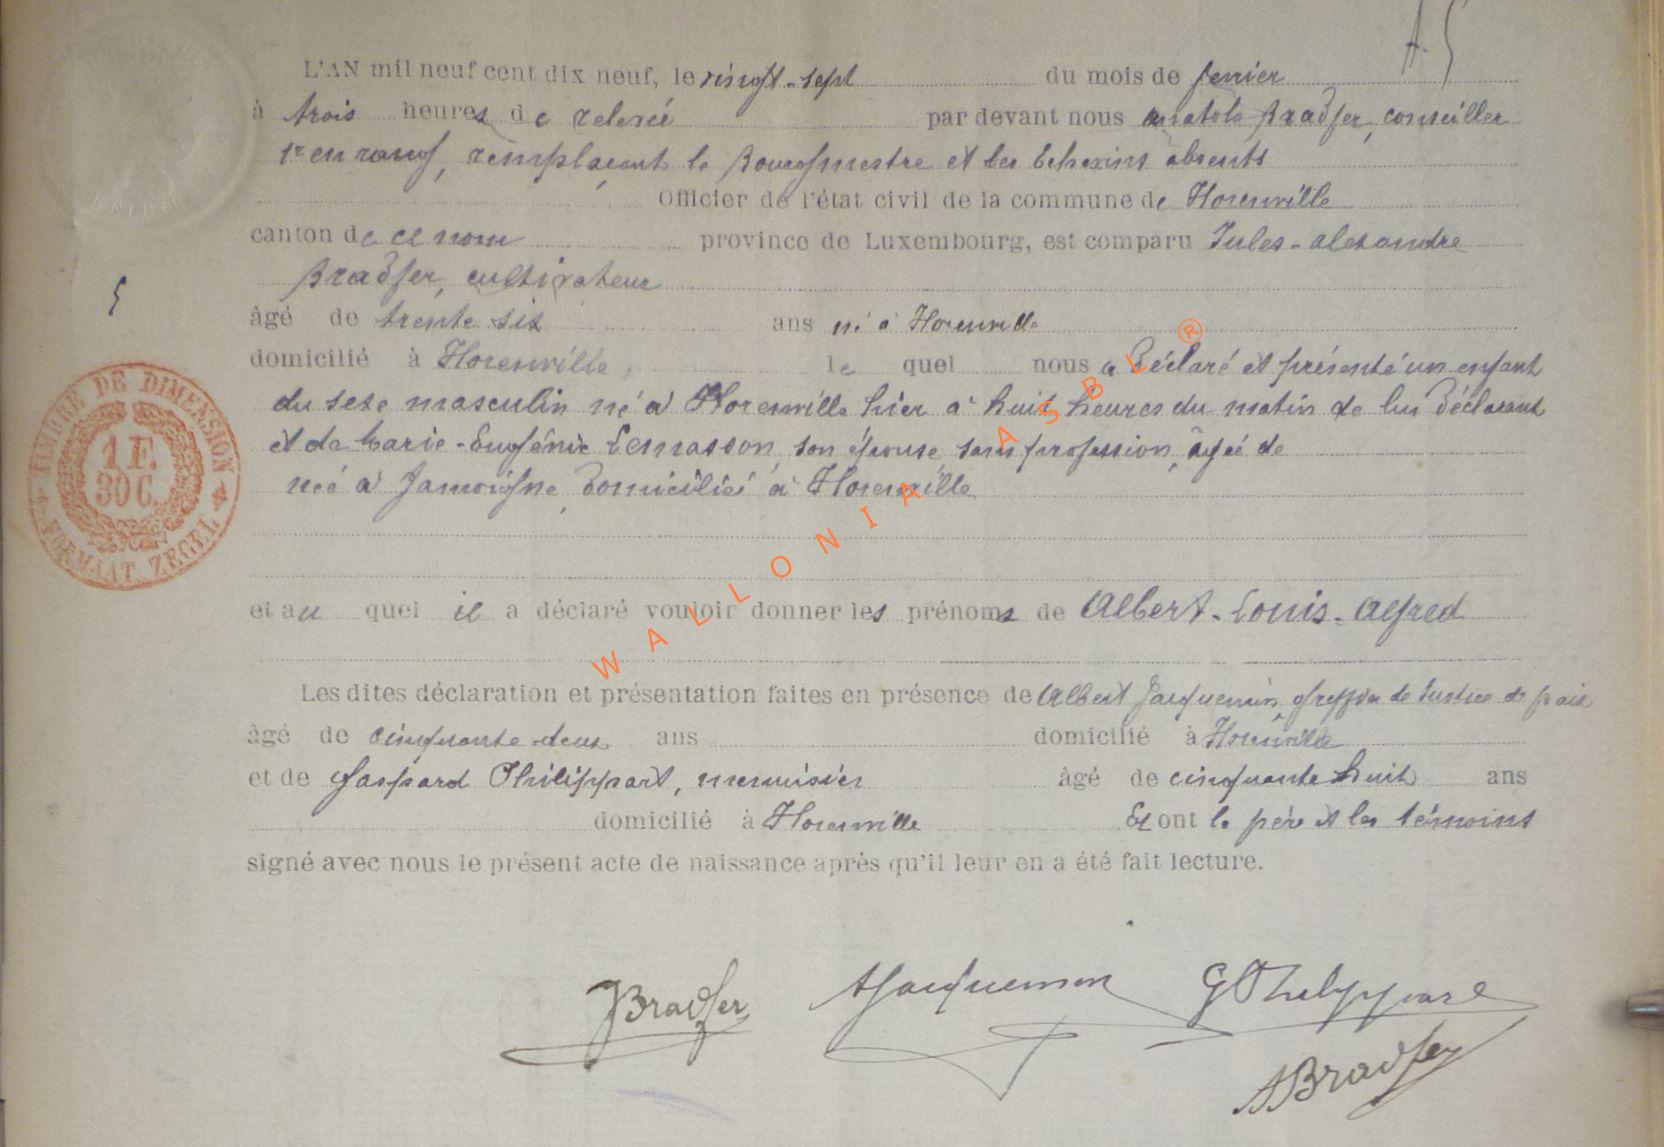 A. 5
L'AN mil neuf cent dix neuf, le vingt-sept du mois de février
à trois heures de relevée par devant nous Anatole Bradfer, conseiller
1er en rang, remplaçant le Bourgmestre et les Echevins absents
Officier de l'état civil de la commune de Florenville
canton de ce nom province de Luxembourg, est comparu Jules-Alexandre
Bradfer, cultivateur
5
âgé de trente six ans né à Florenville
domicilié à Florenville, le quel nous a déclaré et présenté un enfant
du sexe masculin né à Florenville hier à huit heures du matin de lui déclarant
et de Marie-Eugénie Lemasson, son épouse, sans profession, âgée de
née à Jamoigne, domiciliée à Florenville
et au quel il a déclaré vouloir donner les prénoms de Albert-Louis-Alfred
Les dites déclaration et présentation faites en présence de Albert Jacquemin, greffier de Justice de paix
âgé de cinquante-deux ans domicilié à Florenville
et de Gaspard Philippart, menuisier âgé de cinquante huit ans
domicilié à Florenville Et ont le père et les témoins
signé avec nous le présent acte de naissance après qu'il leur en a été fait lecture.
JBradfer AJacquemin GPhilippart
ABradfer
TIMBRE DE DIMENSION
1 F.
30 C.
FORMAAT ZEGEL
WALLONIA ASBL ®